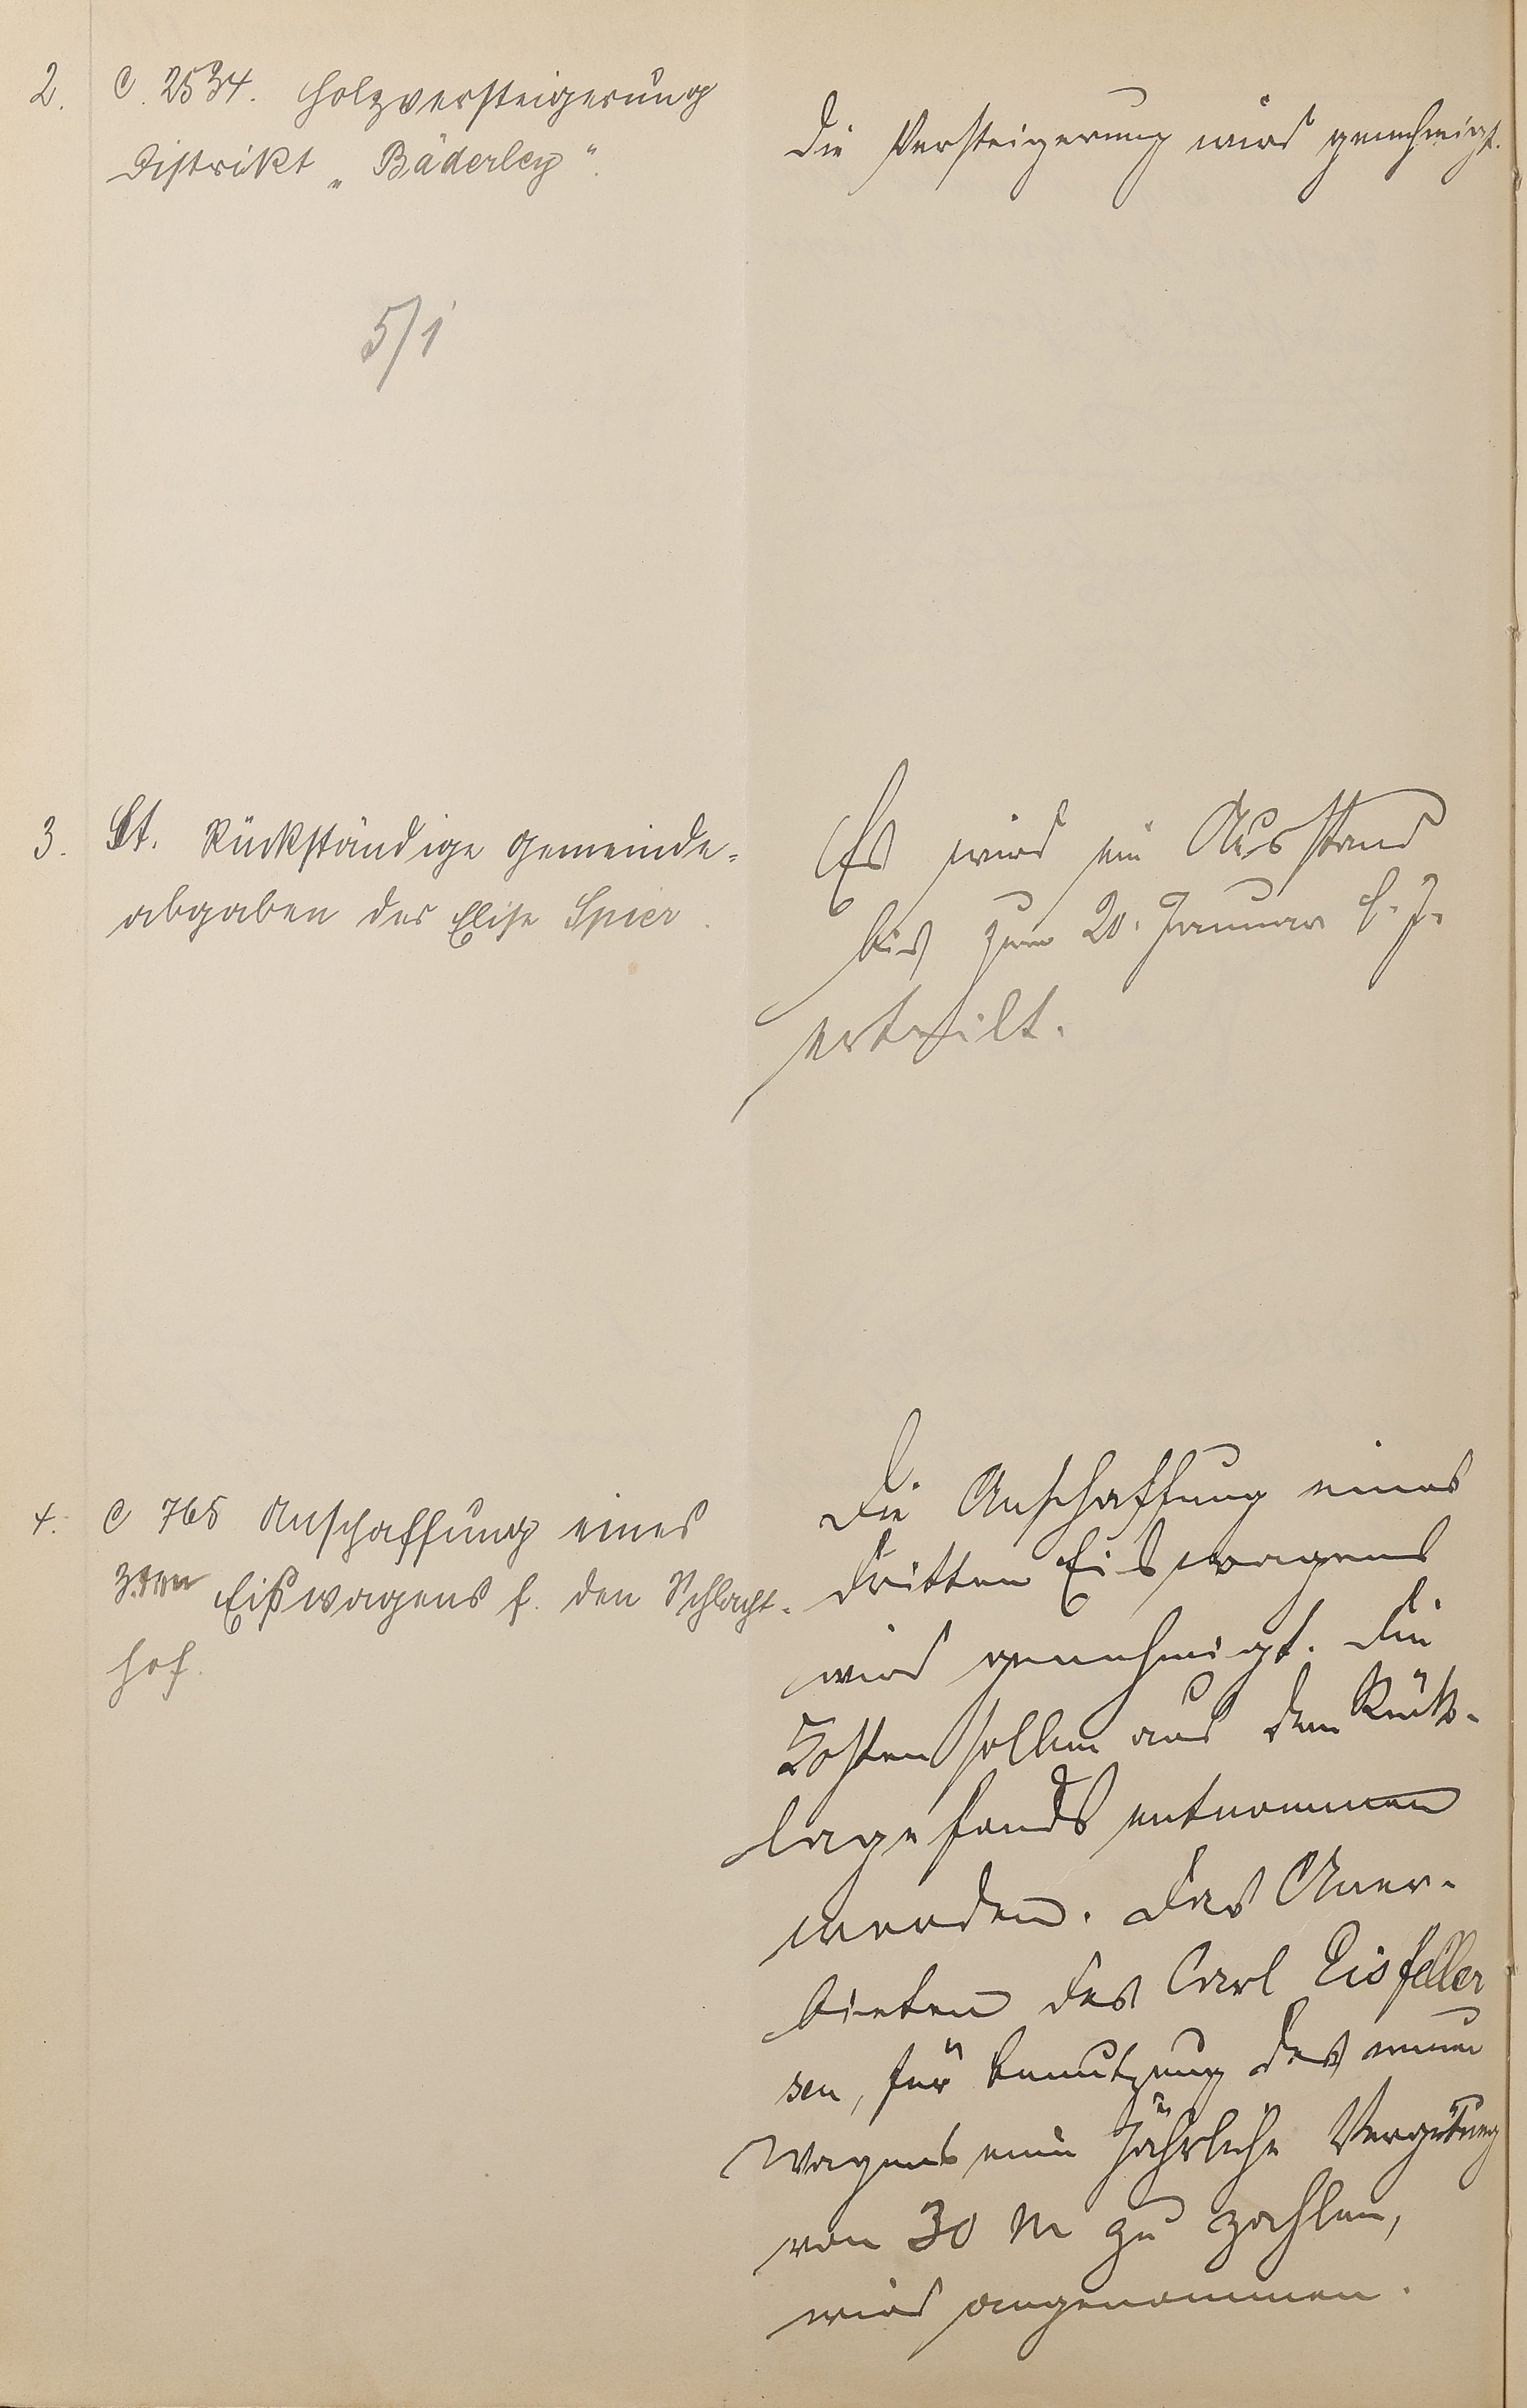 2. C. 2534. Holzversteigerung
Distrikt „Bäderley“.
Die Versteigerung wird genehmigt.
5/1
3. St. Rückständige Gemeinde-
abgaben der Elise Spier.
Es wird ein Ausstand
bis zum 20. Januar l. J.
ertheilt.
4. C 765 Anschaffung eines
3.ten Eißwagens f. den Schlacht-
hof.
Die Anschaffung eines
dritten Eiswagens
wird genehmigt. Die
Kosten sollen aus dem Rück-
lagefonds entnommen
werden. Das Aner-
bieten des Carl Eisfeller
sen, für Benutzung des neuen
Wagens eine jährliche Vergütung
von 30 M zu zahlen,
wird angenommen.